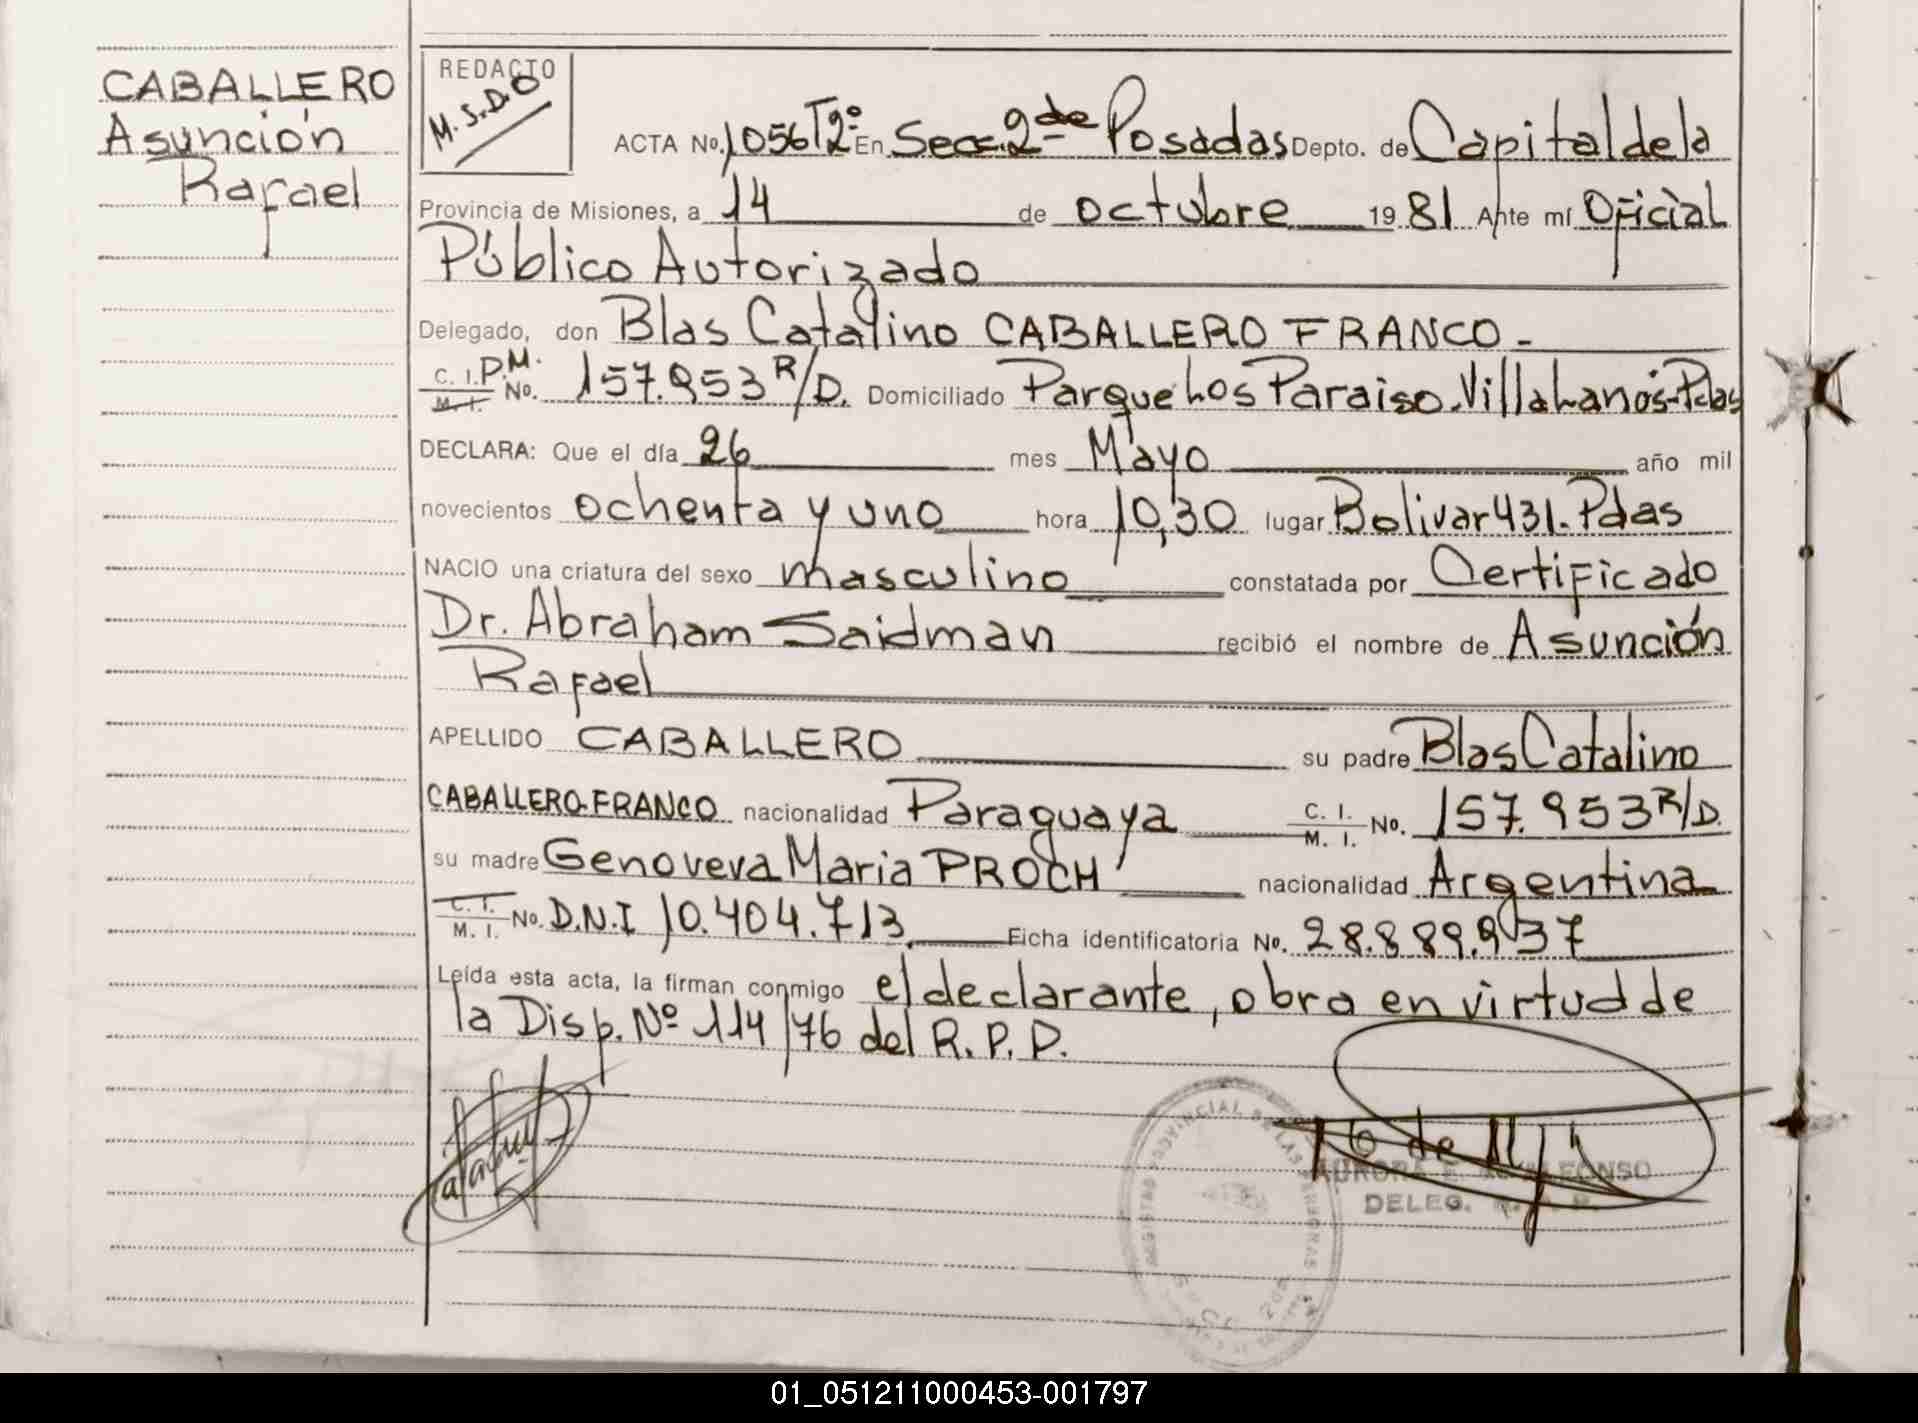 CABALLERO
Asunción
Rafael
REDACTO
M.S.D.O
ACTA No. 1056 T2º En Secc. 2de Posadas Depto. de Capital de la
Provincia de Misiones, a 14 de octubre 1981 Ante mí Oficial
Público Autorizado
Delegado, don Blas Catalino CABALLERO FRANCO -
C. I. P.M. M. I. No. 157.953 R/D. Domiciliado Parque Los Paraiso. Villa Lanús-Pdas
DECLARA: Que el día 26 mes Mayo año mil
novecientos ochenta y uno hora 10,30 lugar Bolivar 431. Pdas
NACIO una criatura del sexo masculino constatada por Certificado
Dr. Abraham Saidman recibió el nombre de Asunción
Rafael
APELLIDO CABALLERO su padre Blas Catalino
CABALLERO-FRANCO nacionalidad Paraguaya C. I. M. I. No. 157.953 R/D.
su madre Genoveva Maria PROCH nacionalidad Argentina
C. I. M. I. No. D.N.I 10.404.713 Ficha identificatoria No. 28.889.937
Leída esta acta, la firman conmigo el declarante, obra en virtud de
la Disp. Nº 114/76 del R.P.P.
AURORA E.
DELEG.
01_051211000453-001797